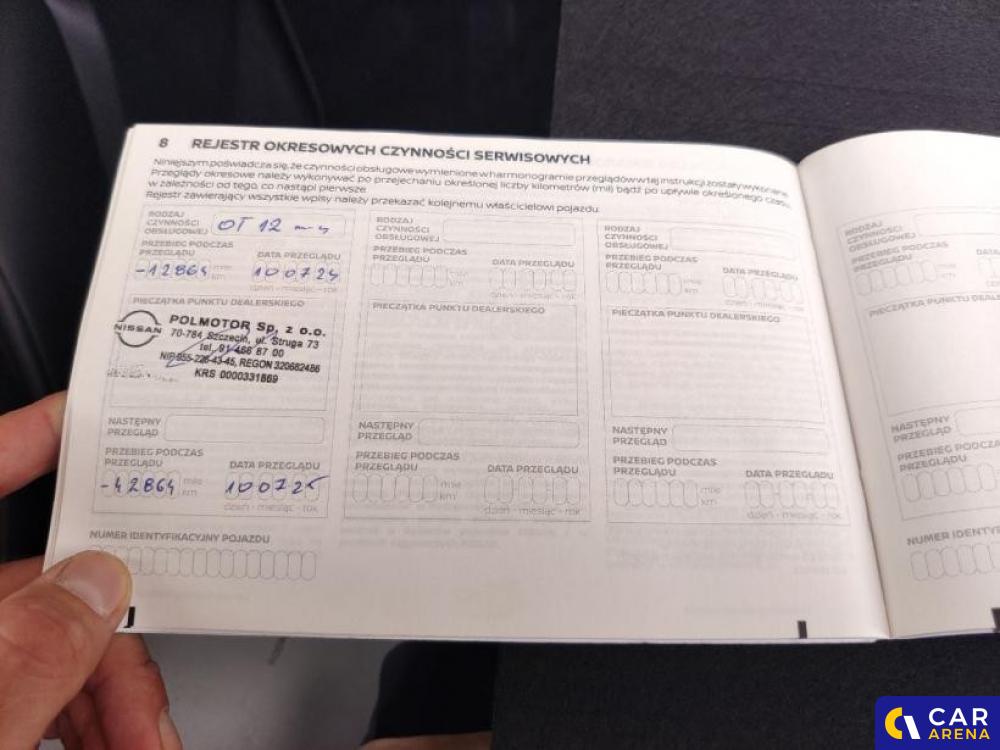 8 REJESTR OKRESOWYCH CZYNNOŚCI SERWISOWYCH
Niniejszym poświadcza się, że czynności obsługowe wymienione w harmonogramie przeglądów w tej instrukcji zostały wykonane.
Przeglądy okresowe należy wykonywać po przejechaniu określonej liczby kilometrów (mil) bądź po upływie określonego czasu,
w zależności od tego, co nastąpi pierwsze.
Rejestr zawierający wszystkie wpisy należy przekazać kolejnemu właścicielowi pojazdu.
RODZAJ
CZYNNOŚCI
OBSŁUGOWEJ
OT 12
PRZEBIEG PODCZAS
PRZEGLĄDU
DATA PRZEGLĄDU
-12864 mile
km
100724
dzień - miesiąc - rok
PIECZĄTKA PUNKTU DEALERSKIEGO
NISSAN
POLMOTOR Sp. z o.o.
70-784 Szczecin, ul. Struga 73
tel. 91 468 87 00
NIP 955-226-43-45, REGON 320682486
KRS 0000331869
NASTĘPNY
PRZEGLĄD
PRZEBIEG PODCZAS
PRZEGLĄDU
DATA PRZEGLĄDU
-42864 mile
km
100725
dzień - miesiąc - rok
NUMER IDENTYFIKACYJNY POJAZDU
RODZAJ
CZYNNOŚCI
OBSŁUGOWEJ
PRZEBIEG PODCZAS
PRZEGLĄDU
DATA PRZEGLĄDU
mile
km
dzień - miesiąc - rok
PIECZĄTKA PUNKTU DEALERSKIEGO
NASTĘPNY
PRZEGLĄD
PRZEBIEG PODCZAS
PRZEGLĄDU
DATA PRZEGLĄDU
mile
km
dzień - miesiąc - rok
RODZAJ
CZYNNOŚCI
OBSŁUGOWEJ
PRZEBIEG PODCZAS
PRZEGLĄDU
DATA PRZEGLĄDU
mile
km
dzień - miesiąc - rok
PIECZĄTKA PUNKTU DEALERSKIEGO
NASTĘPNY
PRZEGLĄD
PRZEBIEG PODCZAS
PRZEGLĄDU
DATA PRZEGLĄDU
mile
km
dzień - miesiąc - rok
RODZAJ
CZYNNOŚCI
OBSŁUGOWEJ
PRZEBIEG PODCZAS
PRZEGLĄDU
km
PIECZĄTKA PUNKTU
NASTĘPNY
PRZEGLĄD
PRZEBIEG
PRZEGLĄDU
NUMER
CAR
ARENA